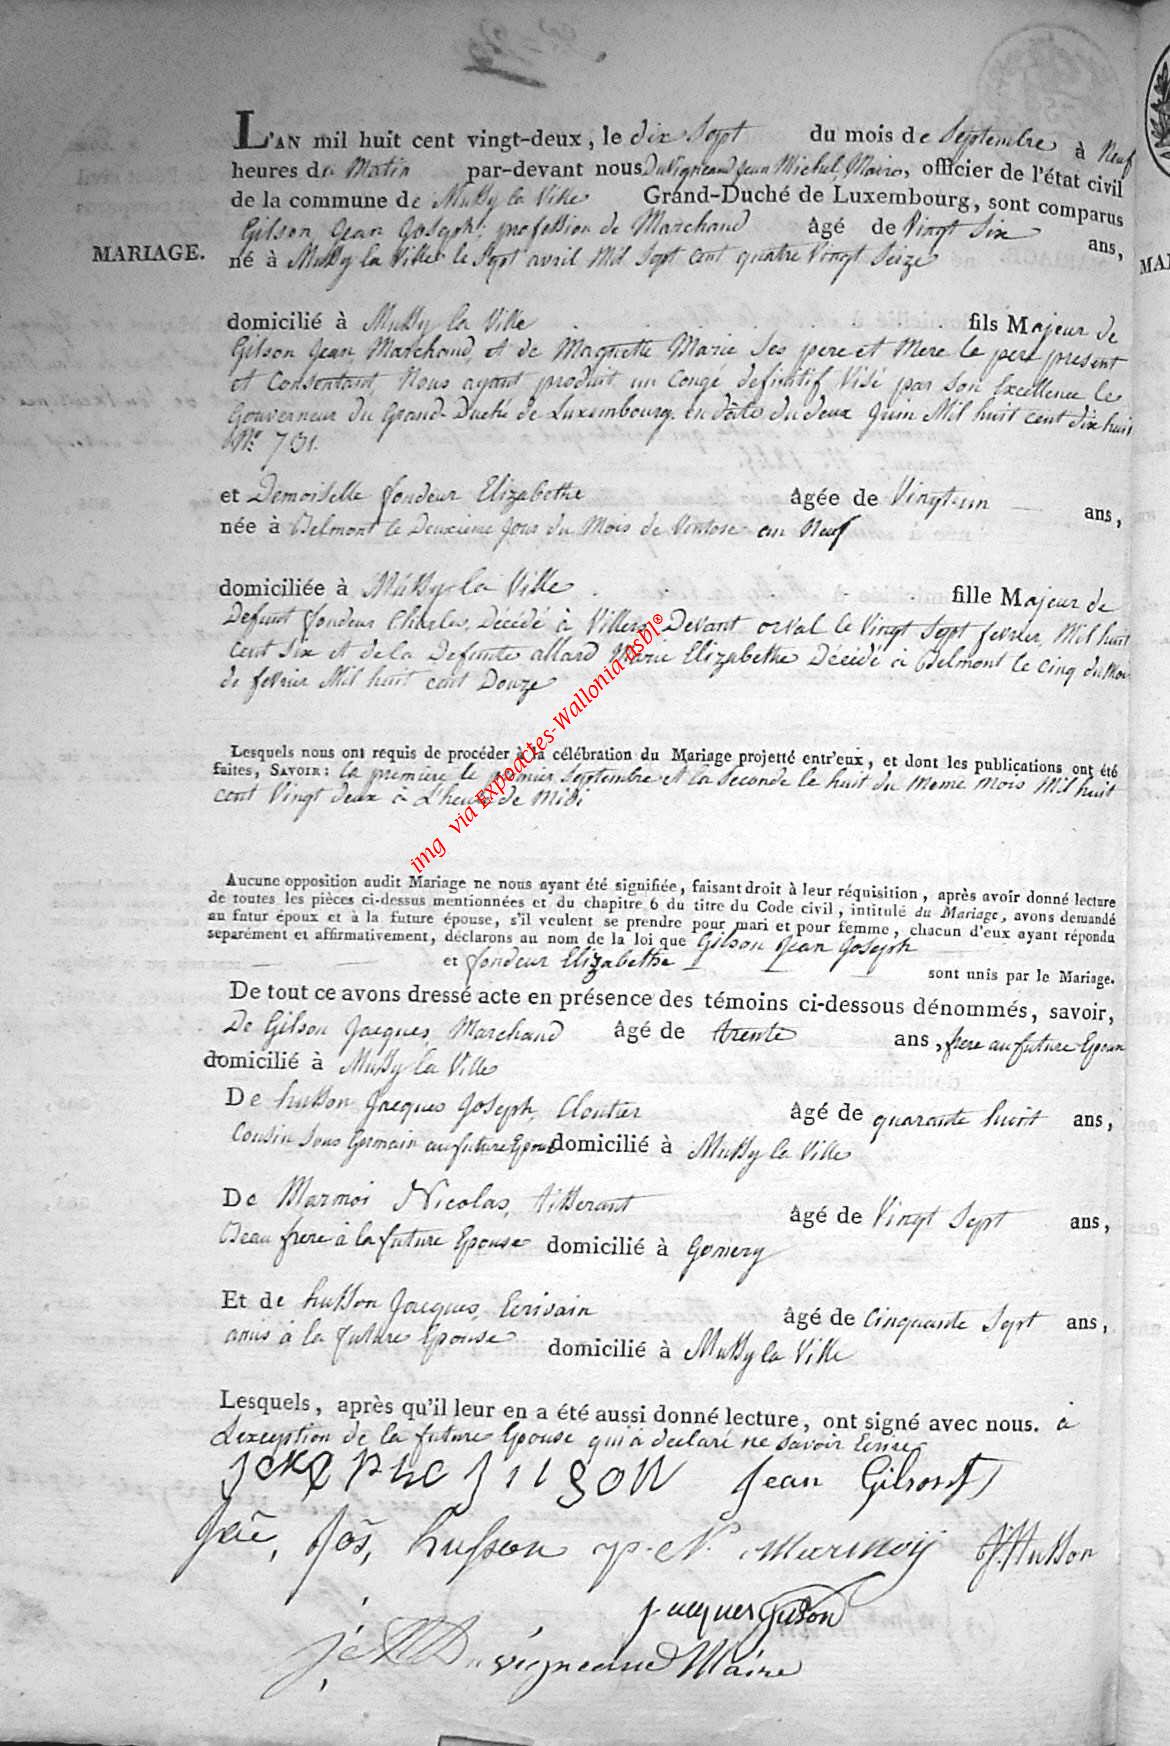 L'AN mil huit cent vingt-deux, le dix Sept du mois de Septembre à Neuf
heures du Matin par-devant nous Duvigneaud Jean Michel, Maire, officier de l'état civil
de la commune de Mussy la Ville Grand-Duché de Luxembourg, sont comparus
Gilson Jean Joseph, profession de Marchand âgé de Vingt Six ans,
MARIAGE.
né à Mussy la Ville le Sept avril Mil Sept cent quatre Vingt Seize
domicilié à Mussy la Ville fils Majeur de
Gilson Jean Marchand, et de Magnette Marie Ses pere et Mere le pere present
et Consentant, Nous ayant produit un Congé definitif Visé par Son Excellence le
Gouverneur du Grand-Duché de Luxembourg en date du deux Juin Mil huit cent dix huit
N.º 731.
et Demoiselle fondeur Elizabethe âgée de Vingt-un ans,
née à Belmont le Deuxieme Jour du Mois de Ventose an Neuf
domiciliée à Mussy la Ville fille Majeur de
Defunt fondeur Charles, Décédé à Villers Devant orval le Vingt Sept fevrier Mil huit
Cent Six et de la Defunte allard Marie Elizabethe Décédé à Belmont le Cinq du Mois
de fevrier Mil huit cent Douze
Lesquels nous ont requis de procéder à la célébration du Mariage projetté entr'eux, et dont les publications ont été
faites, SAVOIR: la premiere le premier Septembre et la Seconde le huit du meme Mois Mil huit
cent Vingt deux à L'heure de Midi
Aucune opposition audit Mariage ne nous ayant été signifiée, faisant droit à leur réquisition, après avoir donné lecture
de toutes les pièces ci-dessus mentionnées et du chapitre 6 du titre du Code civil, intitulé du Mariage, avons demandé
au futur époux et à la future épouse, s'il veulent se prendre pour mari et pour femme, chacun d'eux ayant répondu
separément et affirmativement, déclarons au nom de la loi que Gilson Jean Joseph
et fondeur Elizabethe sont unis par le Mariage.
De tout ce avons dressé acte en présence des témoins ci-dessous dénommés, savoir,
De Gilson Jacques, Marchand âgé de trente ans, frere au future Epoux
domicilié à Mussy la Ville
De husson Jacques Joseph, Cloutier âgé de quarante huit ans,
Cousin Sous Germain au future Epoux domicilié à Mussy la Ville
De Marmoi Nicolas, tisserant âgé de Vingt Sept ans,
Beau frere à la future Epouse domicilié à Gomery
Et de husson Jacques, Ecrivain âgé de Cinquante Sept ans,
amis à la future Epouse domicilié à Mussy la Ville
Lesquels, après qu'il leur en a été aussi donné lecture, ont signé avec nous. à
L'exception de la future Epouse qui a declaré ne Savoir Ecrire
Jean Gilson
Jac, Jos, husson N. Marmoÿ J. Husson
jacques Gilson
vigneaud Maire
img via Expoactes-Wallonia-asbl®